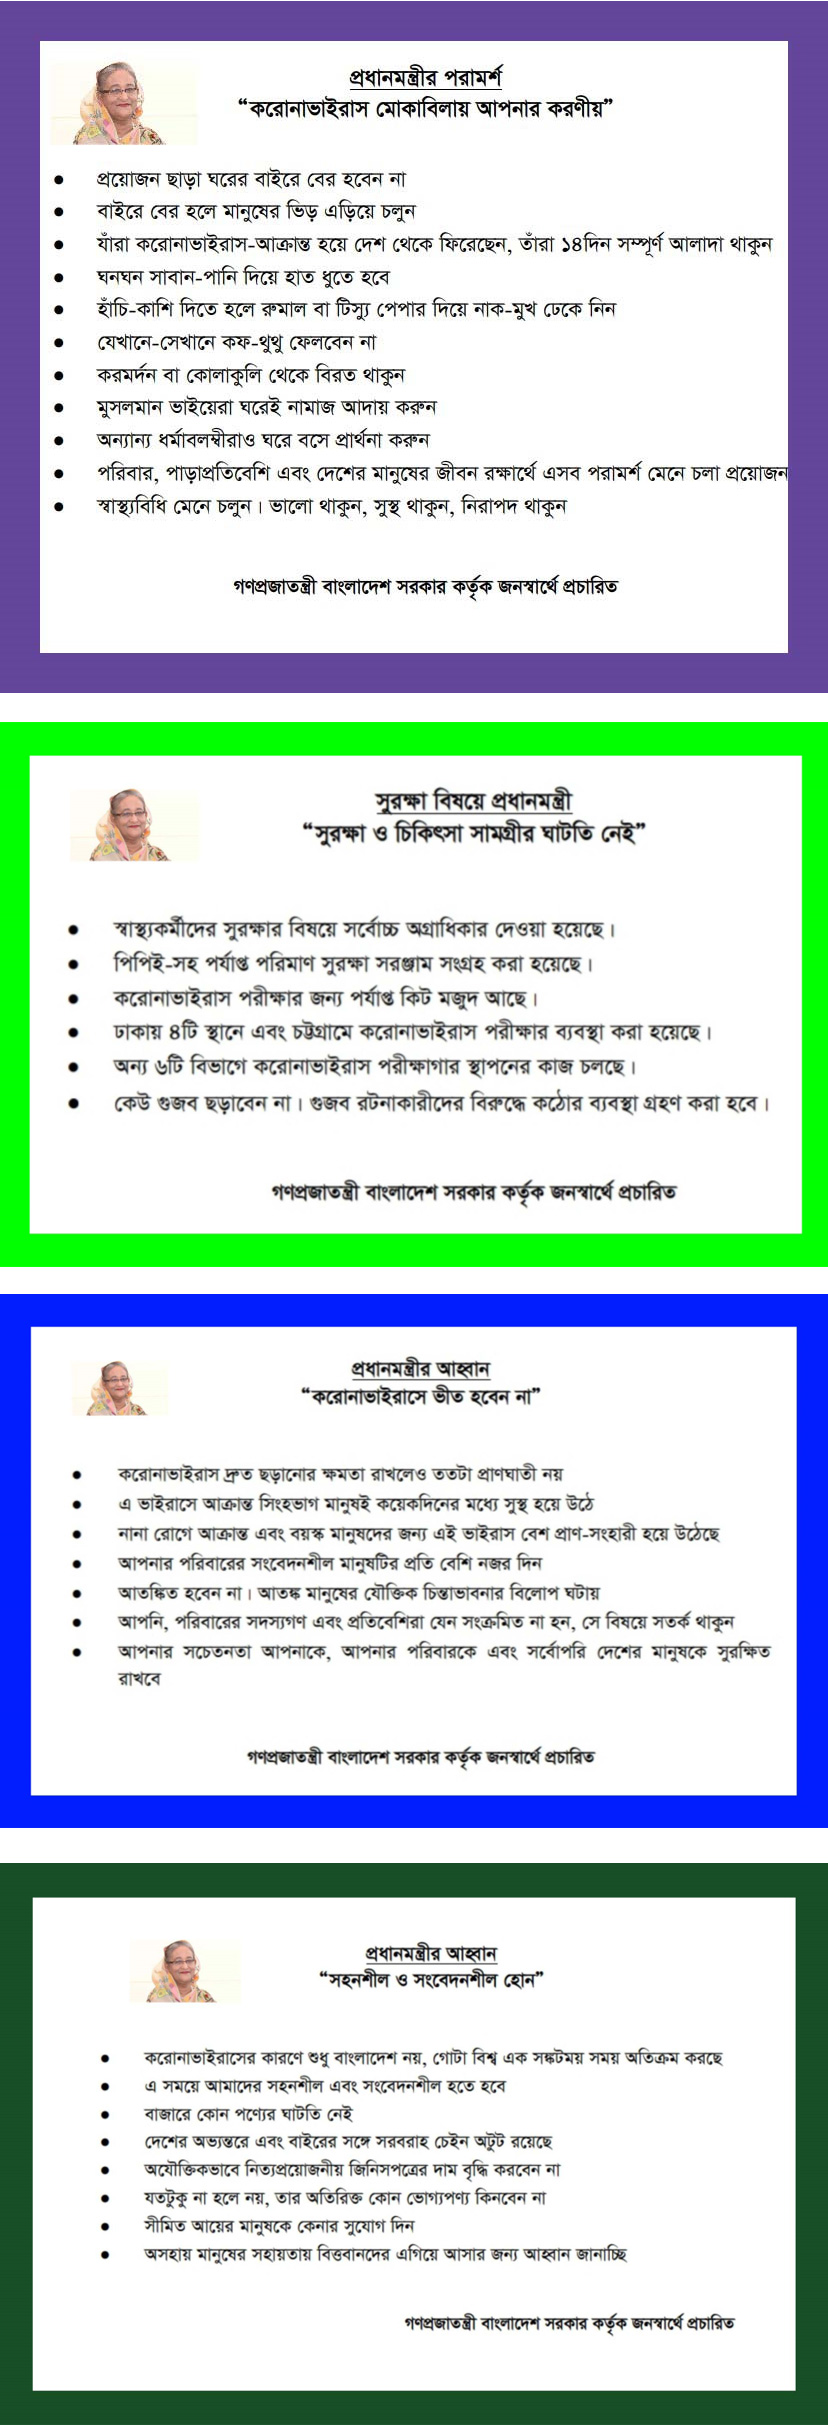 প্রধানমন্ত্রীর পরামর্শ
“করোনাভাইরাস মোকাবিলায় আপনার করণীয়”
● প্রয়োজন ছাড়া ঘরের বাইরে বের হবেন না
● বাইরে বের হলে মানুষের ভিড় এড়িয়ে চলুন
● যাঁরা করোনাভাইরাস-আক্রান্ত হয়ে দেশ থেকে ফিরেছেন, তাঁরা ১৪দিন সম্পূর্ণ আলাদা থাকুন
● ঘনঘন সাবান-পানি দিয়ে হাত ধুতে হবে
● হাঁচি-কাশি দিতে হলে রুমাল বা টিস্যু পেপার দিয়ে নাক-মুখ ঢেকে নিন
● যেখানে-সেখানে কফ-থুথু ফেলবেন না
● করমর্দন বা কোলাকুলি থেকে বিরত থাকুন
● মুসলমান ভাইয়েরা ঘরেই নামাজ আদায় করুন
● অন্যান্য ধর্মাবলম্বীরাও ঘরে বসে প্রার্থনা করুন
● পরিবার, পাড়াপ্রতিবেশি এবং দেশের মানুষের জীবন রক্ষার্থে এসব পরামর্শ মেনে চলা প্রয়োজন
● স্বাস্থ্যবিধি মেনে চলুন। ভালো থাকুন, সুস্থ থাকুন, নিরাপদ থাকুন
গণপ্রজাতন্ত্রী বাংলাদেশ সরকার কর্তৃক জনস্বার্থে প্রচারিত
সুরক্ষা বিষয়ে প্রধানমন্ত্রী
“সুরক্ষা ও চিকিৎসা সামগ্রীর ঘাটতি নেই”
● স্বাস্থ্যকর্মীদের সুরক্ষার বিষয়ে সর্বোচ্চ অগ্রাধিকার দেওয়া হয়েছে।
● পিপিই-সহ পর্যাপ্ত পরিমাণ সুরক্ষা সরঞ্জাম সংগ্রহ করা হয়েছে।
● করোনাভাইরাস পরীক্ষার জন্য পর্যাপ্ত কিট মজুদ আছে।
● ঢাকায় ৪টি স্থানে এবং চট্টগ্রামে করোনাভাইরাস পরীক্ষার ব্যবস্থা করা হয়েছে।
● অন্য ৬টি বিভাগে করোনাভাইরাস পরীক্ষাগার স্থাপনের কাজ চলছে।
● কেউ গুজব ছড়াবেন না। গুজব রটনাকারীদের বিরুদ্ধে কঠোর ব্যবস্থা গ্রহণ করা হবে।
গণপ্রজাতন্ত্রী বাংলাদেশ সরকার কর্তৃক জনস্বার্থে প্রচারিত
প্রধানমন্ত্রীর আহ্বান
“করোনাভাইরাসে ভীত হবেন না”
● করোনাভাইরাস দ্রুত ছড়ানোর ক্ষমতা রাখলেও ততটা প্রাণঘাতী নয়
● এ ভাইরাসে আক্রান্ত সিংহভাগ মানুষই কয়েকদিনের মধ্যে সুস্থ হয়ে উঠে
● নানা রোগে আক্রান্ত এবং বয়স্ক মানুষদের জন্য এই ভাইরাস বেশ প্রাণ-সংহারী হয়ে উঠেছে
● আপনার পরিবারের সংবেদনশীল মানুষটির প্রতি বেশি নজর দিন
● আতঙ্কিত হবেন না। আতঙ্ক মানুষের যৌক্তিক চিন্তাভাবনার বিলোপ ঘটায়
● আপনি, পরিবারের সদস্যগণ এবং প্রতিবেশিরা যেন সংক্রমিত না হন, সে বিষয়ে সতর্ক থাকুন
● আপনার সচেতনতা আপনাকে, আপনার পরিবারকে এবং সর্বোপরি দেশের মানুষকে সুরক্ষিত
রাখবে
গণপ্রজাতন্ত্রী বাংলাদেশ সরকার কর্তৃক জনস্বার্থে প্রচারিত
প্রধানমন্ত্রীর আহ্বান
“সহনশীল ও সংবেদনশীল হোন”
● করোনাভাইরাসের কারণে শুধু বাংলাদেশ নয়, গোটা বিশ্ব এক সঙ্কটময় সময় অতিক্রম করছে
● এ সময়ে আমাদের সহনশীল এবং সংবেদনশীল হতে হবে
● বাজারে কোন পণ্যের ঘাটতি নেই
● দেশের অভ্যন্তরে এবং বাইরের সঙ্গে সরবরাহ চেইন অটুট রয়েছে
● অযৌক্তিকভাবে নিত্যপ্রয়োজনীয় জিনিসপত্রের দাম বৃদ্ধি করবেন না
● যতটুকু না হলে নয়, তার অতিরিক্ত কোন ভোগ্যপণ্য কিনবেন না
● সীমিত আয়ের মানুষকে কেনার সুযোগ দিন
● অসহায় মানুষের সহায়তায় বিত্তবানদের এগিয়ে আসার জন্য আহ্বান জানাচ্ছি
গণপ্রজাতন্ত্রী বাংলাদেশ সরকার কর্তৃক জনস্বার্থে প্রচারিত